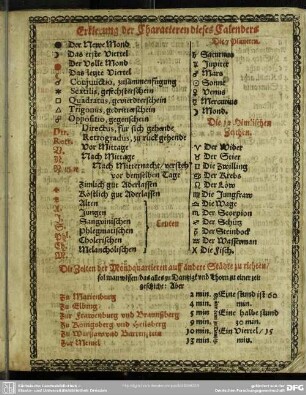 Erklerung der Charactieren dieses Calenders
Der Newe Mond
Das erste Viertel
Der Volle Mond
Das letzte Viertel
☌ Conjunctio, zusammenfügung
✶ Sextilis, gesechsterschein
□ Quadratus, gevierdterschein
△ Trigonus, gedritterschein
☍ Oppositio, gegenschein
Dir. Directus, für sich gehende
Retr. Retrogradus, zu rück gehende
Vor Mittage
Nach Mittage
Nach Mitternacht/versteh
vor demselben Tage
Zimlich gut Aderlassen
Köstlich gut Aderlassen
Alten
Jungen
Sanguinischen
Phlegmatischen
Cholerischen
Melancholischen
Leuten
Die 7 planeten.
♄ Saturnus
♃ Jupiter
♂ Mars
☉ Sonne
♀ Venus
☿ Mercurius
☽ Mond
Die 12 Himlischen
Zeichen.
♈ Der Wider
♉ Der Stier
♊ Die Zwilling
♋ Der Krebs
♌ Der Löw
♍ Die Jungfraw
♎ Die Wage
♏ Der Scorpion
♐ Der Schütz
♑ Der Steinbock
♒ Der Wasserman
♓ Die Fisch.
Die Zeiten der Mondquartieren auff andere Städte zu richten/
sol man wissen das alles zu Dantzig und Thorn zu einer zeit
geschicht: Aber
Zu Marienburg 2 min.
Zu Elbing 4 min.
Zu Frawenburg und Braunßberg 5 min.
Zu Königsberg und Heilsberg 9 min.
10 min.
Zu Memel 13 min.
Eine stund ist 60
min.
Eine halbe stund
30 min.
Ein Viertel/15
min.